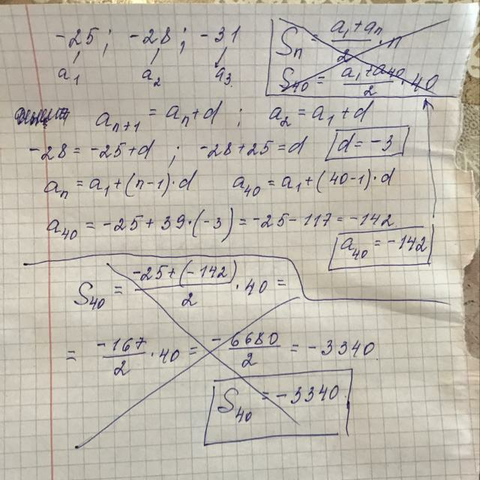 -25 ; -28 ; -31
a₁ a₂ a₃
Sₙ = (a₁+aₙ)/2 · n
S₄₀ = (a₁+a₄₀)/2 · 40
aₙ₊₁ = aₙ+d ; a₂ = a₁+d
-28 = -25+d ; -28+25 = d d = -3
aₙ = a₁+(n-1)·d a₄₀ = a₁+(40-1)·d
a₄₀ = -25+39·(-3) = -25-117 = -142
a₄₀ = -142
S₄₀ = (-25+(-142))/2 · 40 =
= -167/2 · 40 = -6680/2 = -3340
S₄₀ = -3340